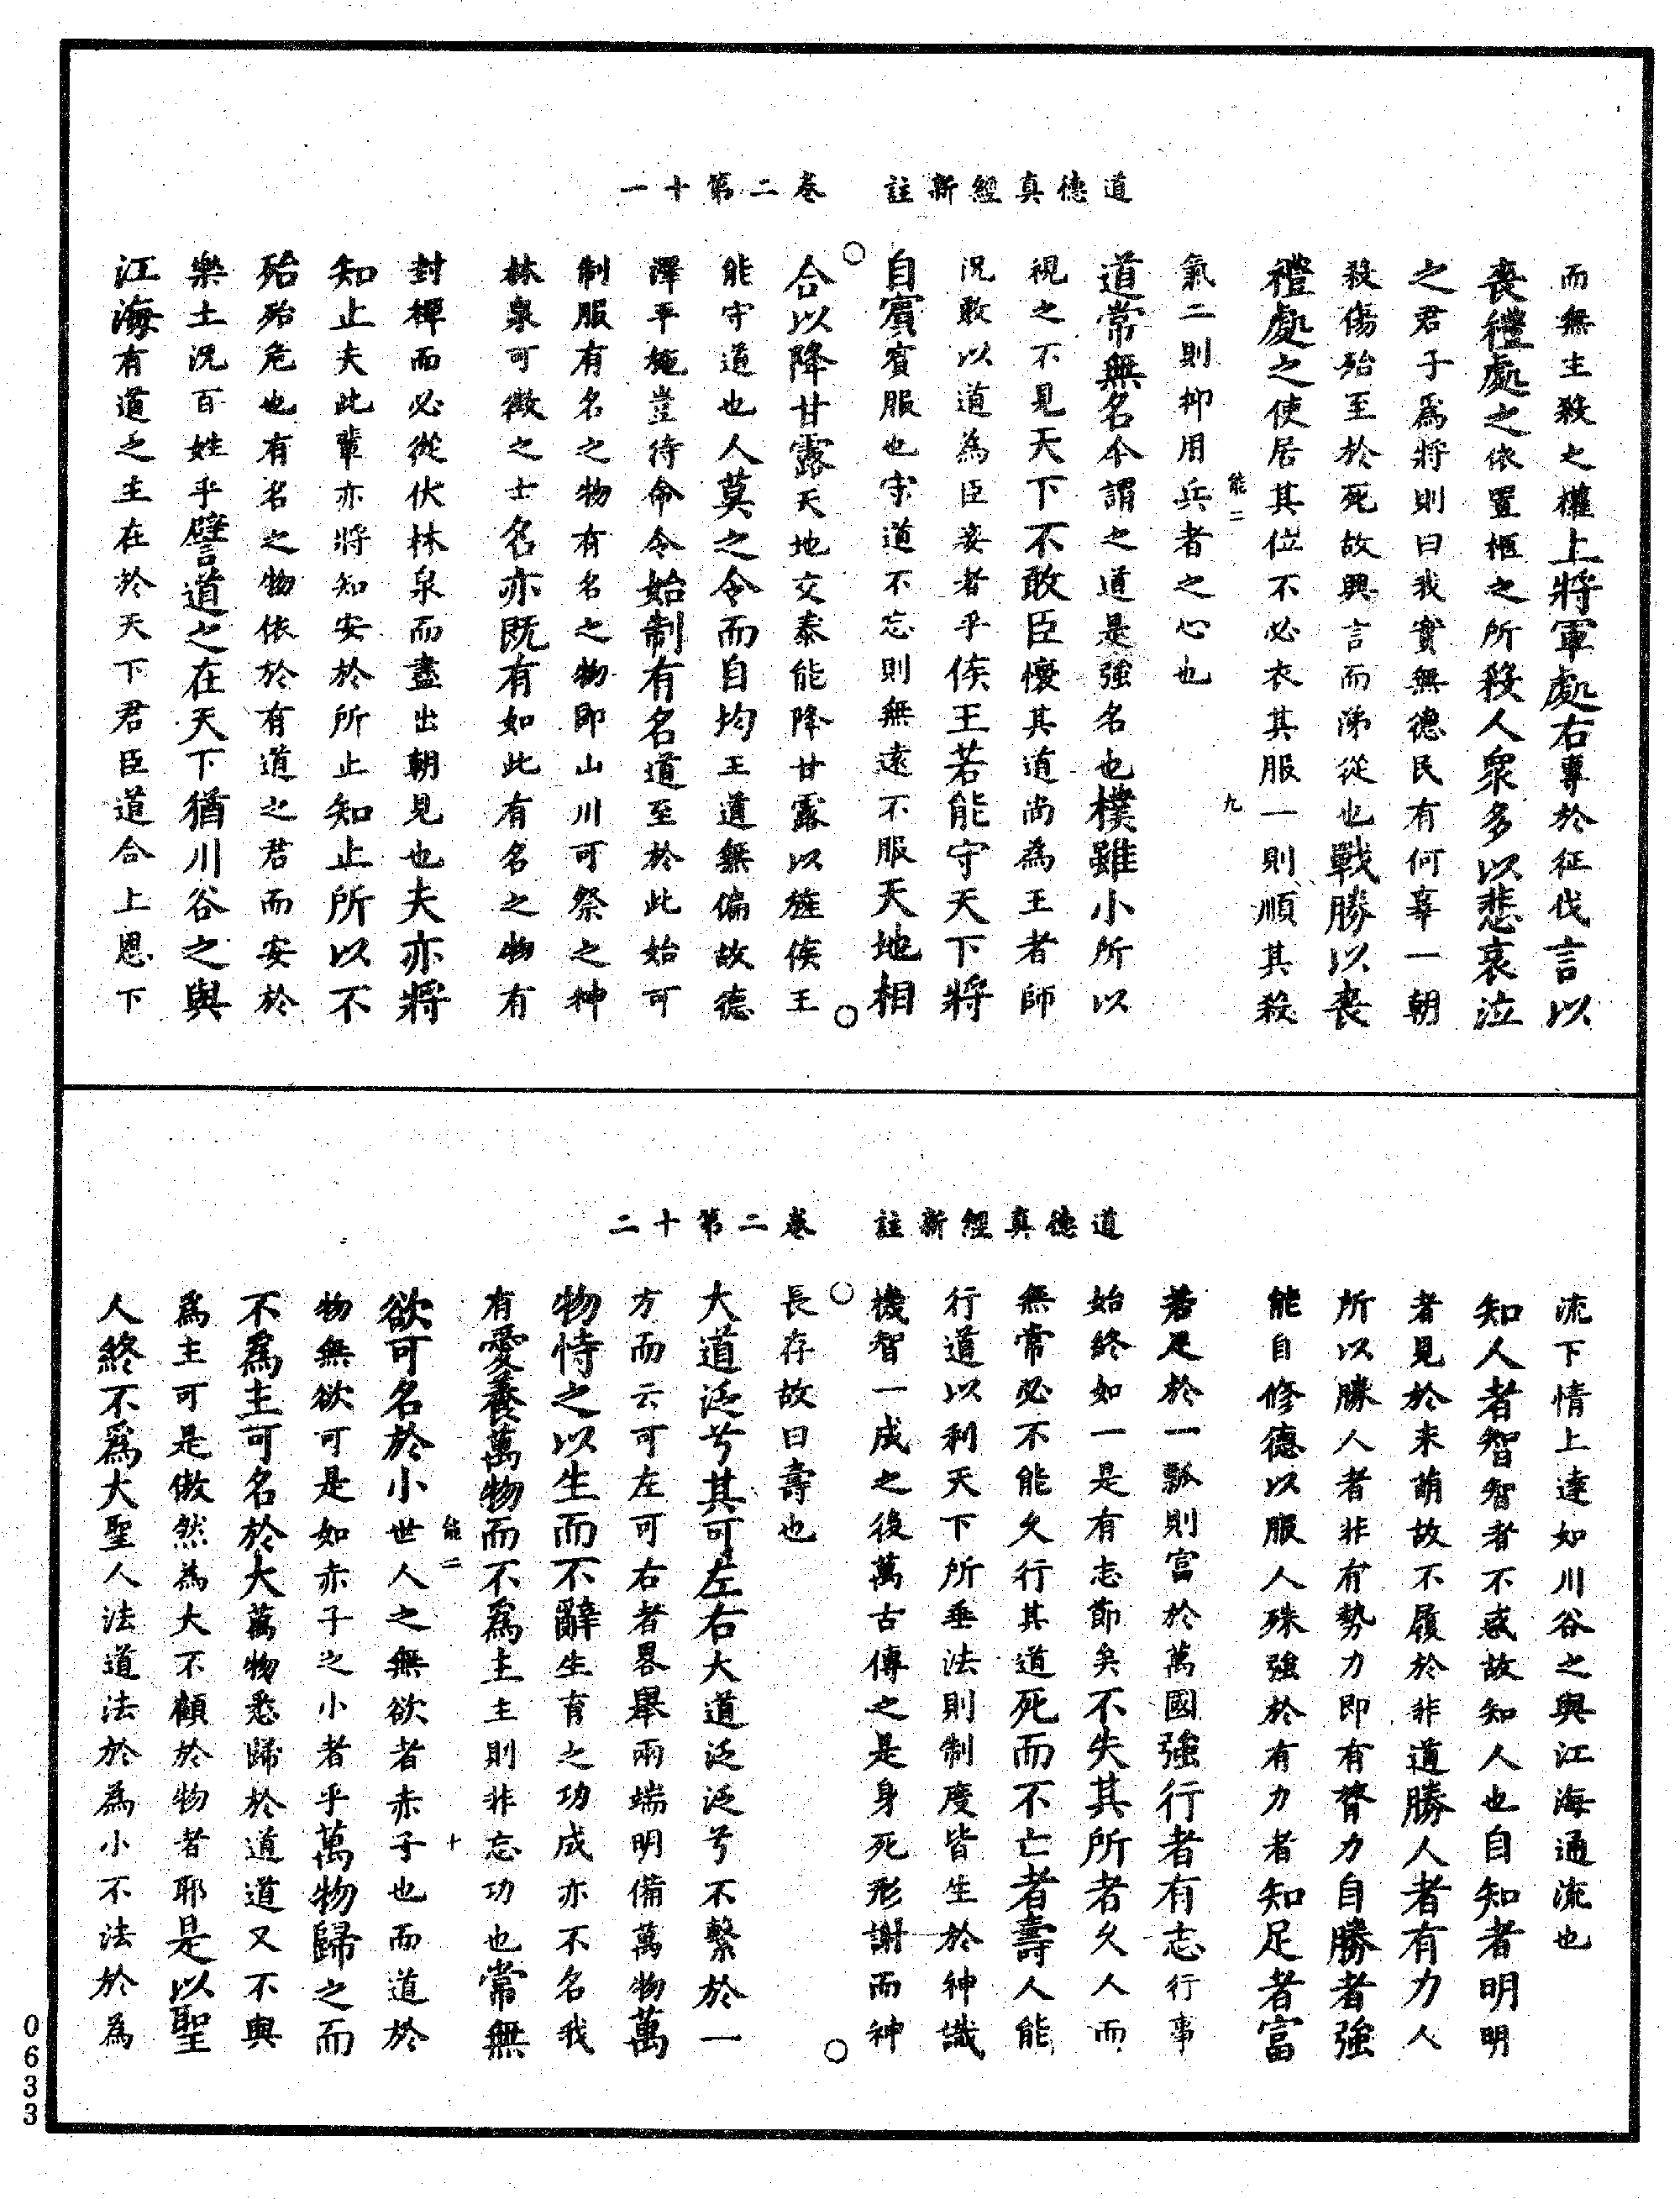 道德真經新註　卷二第十一
而無主殺之權上將軍處右專於征伐言以
喪禮處之依置柩之所殺人衆多以悲哀泣
之君子爲將則曰我實無德民有何辜一朝
殺傷殆至於死故興言而涕從也戰勝以喪
禮處之使居其位不必衣其服一則順其殺
能二　九
氣二則抑用兵者之心也
道常無名今謂之道是強名也樸雖小所以
視之不見天下不敢臣懷其道尚為王者師
況敢以道為臣妾者乎侯王若能守天下將
自賓賓服也守道不忘則無遠不服天地相
合以降甘露天地交泰能降甘露以旌侯王
能守道也人莫之令而自均王道無偏故德
澤平施豈待命令始制有名道至於此始可
制服有名之物有名之物即山川可祭之神
林泉可徵之士名亦既有如此有名之物有
封禪而必從伏林泉而盡出朝見也夫亦將
知止夫此輩亦將知安於所止知止所以不
殆殆危也有名之物依於有道之君而安於
樂土況百姓乎譬道之在天下猶川谷之與
江海有道之主在於天下君臣道合上恩下
道德真經新註　卷二第十二
流下情上達如川谷之與江海通流也
知人者智智者不惑故知人也自知者明明
者見於未萌故不履於非道勝人者有力人
所以勝人者非有勢力即有膂力自勝者強
能自修德以服人殊強於有力者知足者富
若足於一瓢則富於萬國強行者有志行事
始終如一是有志節矣不失其所者久人而
無常必不能久行其道死而不亡者壽人能
行道以利天下所垂法則制度皆生於神識
機智一成之後萬古傳之是身死形謝而神
長存故曰壽也
大道泛兮其可左右大道泛泛兮不繫於一
方而云可左可右者畧舉兩端明備萬物萬
物恃之以生而不辭生育之功成亦不名我
有愛養萬物而不爲主主則非忘功也常無
能二　十
欲可名於小世人之無欲者赤子也而道於
物無欲可是如赤子之小者乎萬物歸之而
不爲主可名於大萬物悉歸於道道又不與
爲主可是傲然為大不顧於物者耶是以聖
人終不爲大聖人法道法於為小不法於為
0633